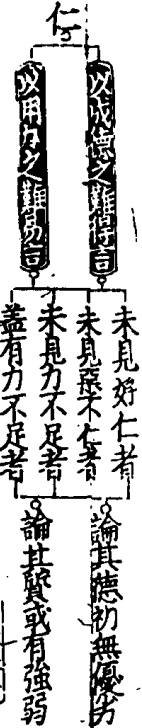 仁
以成德之難得言
以用力之難易言
未見好仁者
未見惡不仁者
未見力不足者
蓋有力不足者
論其德初無優劣
論其質或有強弱